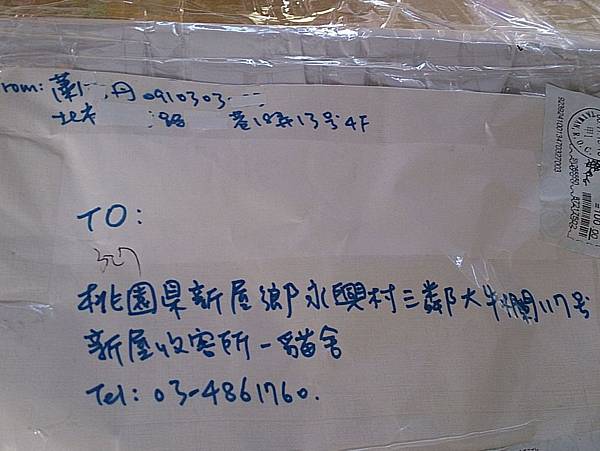 rom: 蕭 丹 0910303
北市 路 巷18弄13号4F
TO:
327
桃園県新屋鄉永興村三鄰大牛欄117号
新屋收容所-貓舍
Tel: 03-4861760.